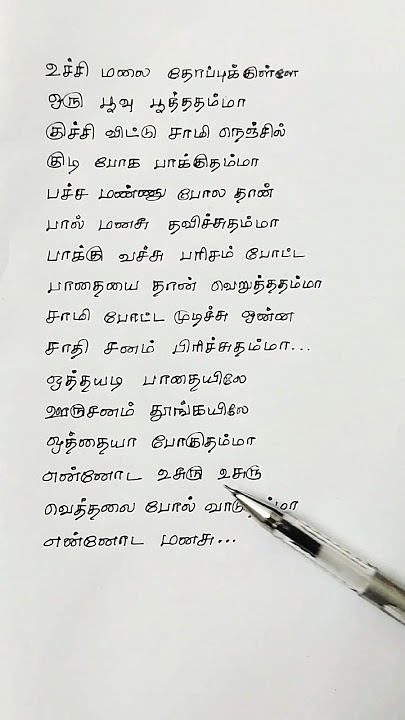 உச்சி மலை தோப்புக்குள்ளே
ஒரு பூவு பூத்ததம்மா
குச்சி விட்டு சாமி நெஞ்சில்
குடி போக பாக்குதம்மா
பச்ச மண்ணு போல தான்
பால் மனசு தவிச்சுதம்மா
பாக்கு வச்சு பரிசம் போட்ட
பாதையை தான் வெறுத்ததம்மா
சாமி போட்ட முடிச்சு ஒன்ன
சாதி சனம் பிரிச்சுதம்மா...
ஒத்தயடி பாதையிலே
ஊருசனம் தூங்கயிலே
ஒத்தையா போகுதம்மா
என்னோட உசுரு உசுரு
வெத்தலை போல்
என்னோட மனசு...